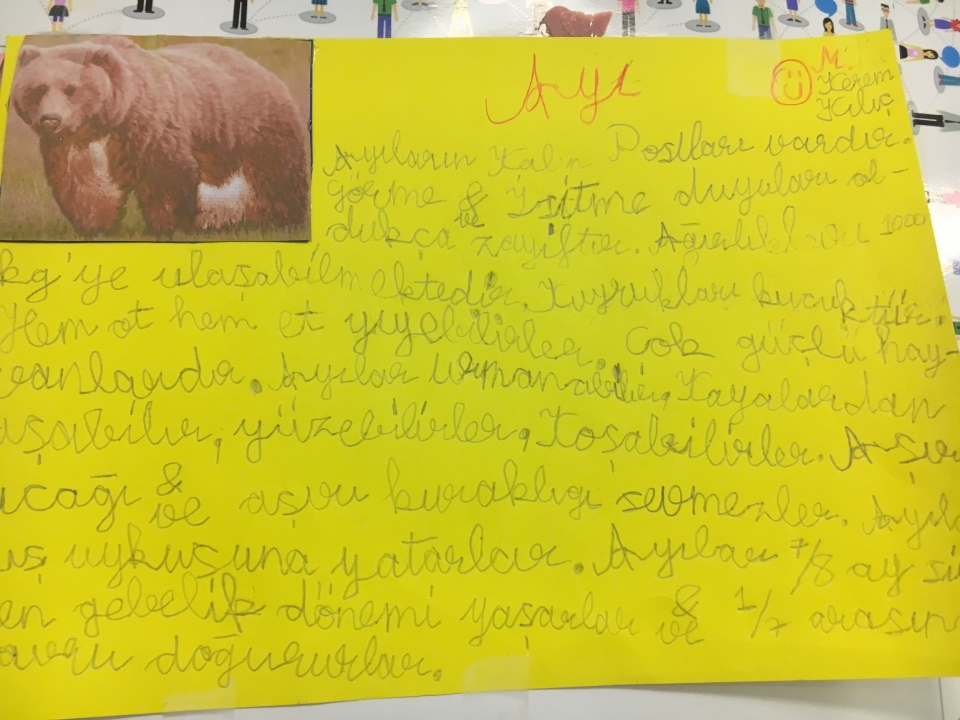 Ayı
M.
Kerem
Kılıç
Ayıların Kalın Postları vardır.
Görme & İşitme duyuları ol-
ve
dukça zayıftır. Ağırlıkları 1000
kg'ye ulaşabilmektedir. Kuyrukları kucuktür.
Hem ot hem et yiyebilirler. Cok güçlü hay-
vanlardır. Ayılar tırmanabilir, Kayalardan
aşabilir, yüzebilirler, Koşabilirler. Aşırı
ıcağı & aşırı kuraklıgı sevmezler. Ayıla
ve
ış uykusuna yatarlar. Ayılar 7/8 ay sü
en gebelik dönemi yaşarlar & 1/7 arasın
ve
avru doğururlar.